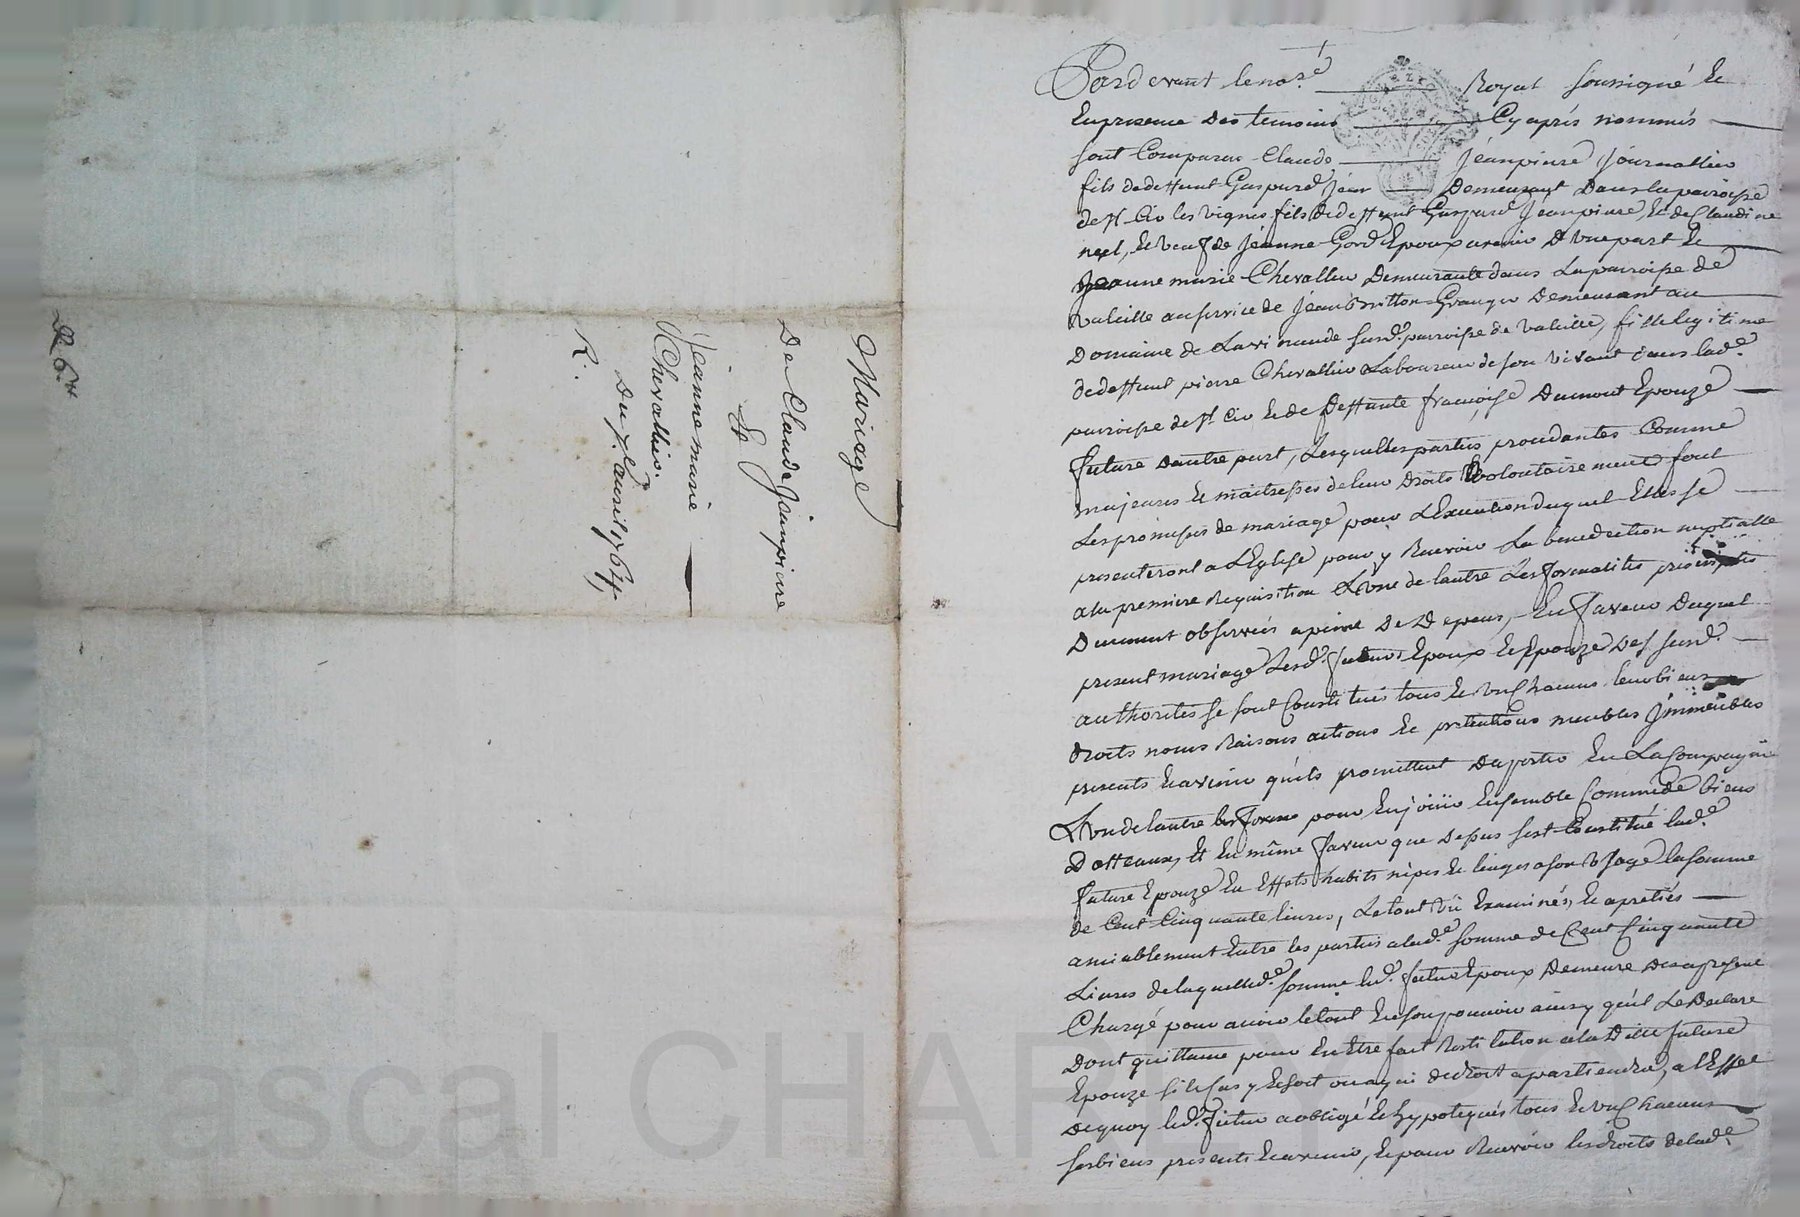 Mariage
De Claude Jeanpierre
Et
Jeanne marie
Chevallier.
Du 7.e avril 1764,
R.
Pardevant le no.re Royal soussigné Et
En presence Des temoins Cy après nommés
sont Comparus Claude Jeanpierre Journallier
fils de deffunt Gaspard Jean Demeurant Dans la paroisse
de St. Cir les vignes fils de deffunt Gaspard Jeanpierre, Et de Claudine
Et veuf de Jeanne Gord Epoux avenir D'Une part Et
Jeanne marie Chevallier Demeurante dans La paroisse de
Valeille au service de Jean Granger Demeurant au
Domaine de susd. paroisse de Valeille, fille legitime
de deffunt pierre Chevallier Laboureur de son vivant dans lad.e
paroisse de St. Cir Et de Deffunte françoise Dumont Epouze
future Dautre part, Lesquelles parties, procedantes Comme
majeures Et maitresses de leur Droits Volontairement font
Les promesses de mariage pour L'Execution duquel Elles se
presenteront a L'Eglise pour y Recevoir La benediction nuptialle
a la premiere Requisition L'Une de lautre Les formalités prescriptes
Duement observées a peine De Depens, En faveur Duquel
present mariage Lesd. futurs Epoux Et Epouze Des susd.
authorités se sont Constitués tous Et Uns Chacuns leurs biens
droits noms Raisons actions Et pretentions meubles Jmmeubles
presents Et avenir qu'ils promettent D'aporter En La Compagnie
L'Un de lautre pour En joüir Ensemble Comme de biens
Dotteaux, Et En même faveur que Dessus sest Constitué lad.e
future Epouze En Effets habits nipes Et linges a son Usage la somme
de Cent Cinquante livres, Le tout Vü Examinés, Et apretiés
amiablement Entre les parties a lad.e somme de Cent Cinquante
Livres de laquelled.e somme led. futur Epoux Demeure Des a present
Chargé pour avoir le tout En son pouvoir ainsy qu'il Le Declare
Dont quittance pour En Etre fait Restitution a la Ditte future
Epouze si le cas y Echoit ou a qui de droit apartiendra, a l'Effet
De quoy led. futur a obligé Et hypotequés tous Et Uns Chacuns
ses biens presents Et avenir, Et pour Recevoir les droits de lad.e
Pascal CHARLY